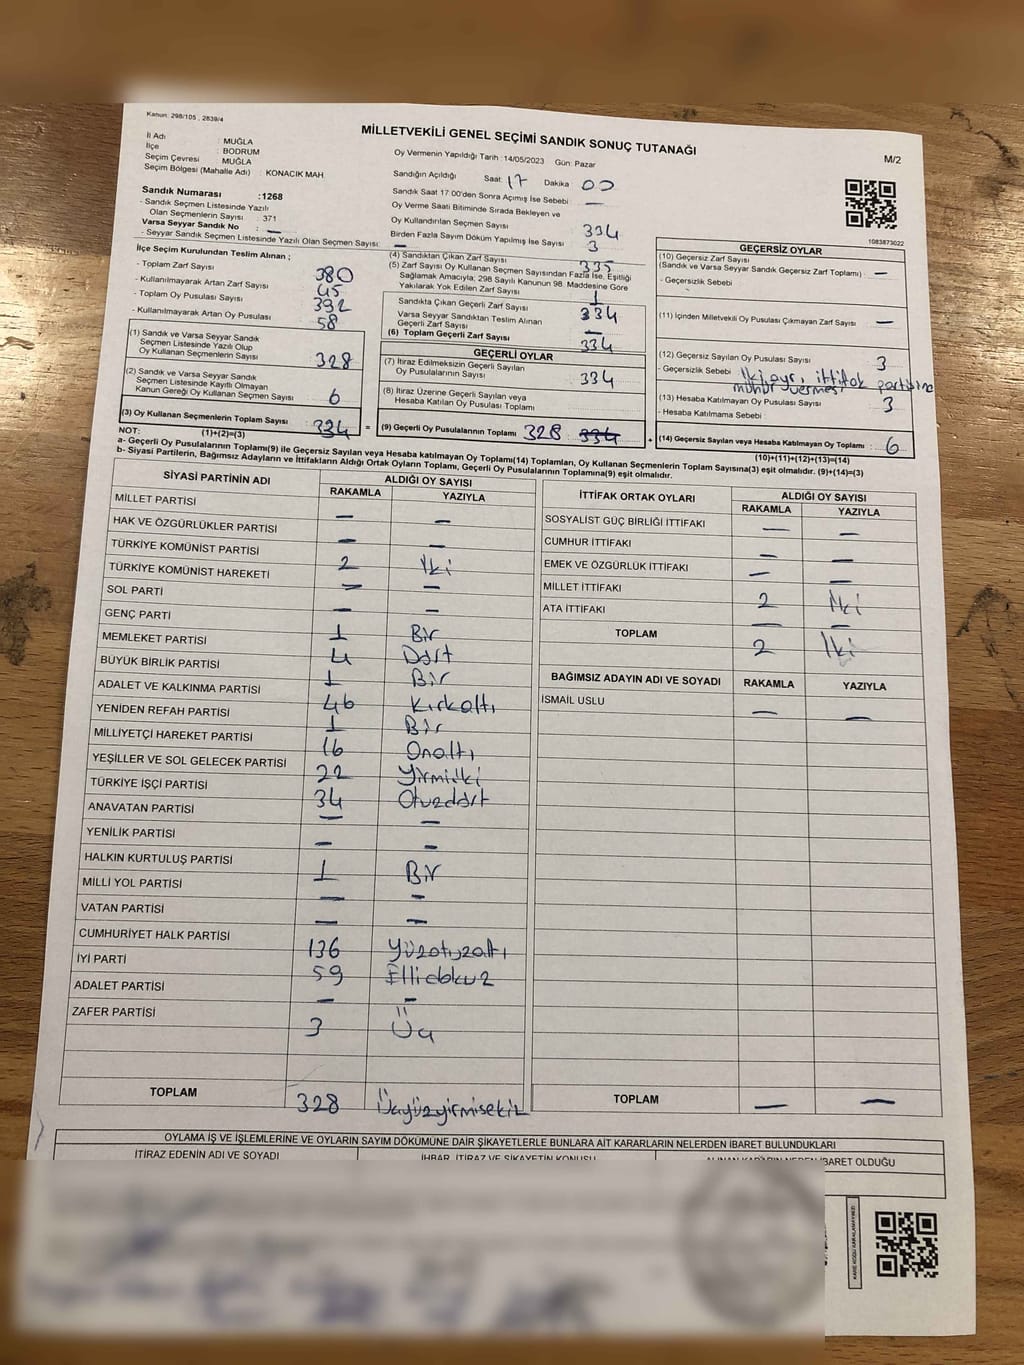 Kanun: 298/105 , 2839/4
MİLLETVEKİLİ GENEL SEÇİMİ SANDIK SONUÇ TUTANAĞI
M/2
İl Adı : MUĞLA
İlçe : BODRUM
Seçim Çevresi : MUĞLA
Seçim Bölgesi (Mahalle Adı) : KONACIK MAH.
Sandık Numarası :1268
- Sandık Seçmen Listesinde Yazılı
Olan Seçmenlerin Sayısı : 371
Varsa Seyyar Sandık No : —
- Seyyar Sandık Seçmen Listesinde Yazılı Olan Seçmen Sayısı: —
Oy Vermenin Yapıldığı Tarih : 14/05/2023 Gün: Pazar
Sandığın Açıldığı Saat: 17 Dakika 00
Sandık Saat 17:00'den Sonra Açılmış İse Sebebi : —
Oy Verme Saati Bitiminde Sırada Bekleyen ve
Oy Kullandırılan Seçmen Sayısı 334
Birden Fazla Sayım Döküm Yapılmış İse Sayısı 3
1083873022
İlçe Seçim Kurulundan Teslim Alınan ;
- Toplam Zarf Sayısı 380
- Kullanılmayarak Artan Zarf Sayısı 45
- Toplam Oy Pusulası Sayısı 392
- Kullanılmayarak Artan Oy Pusulası 58
(1) Sandık ve Varsa Seyyar Sandık
Seçmen Listesinde Yazılı Olup
Oy Kullanan Seçmenlerin Sayısı 328
(2) Sandık ve Varsa Seyyar Sandık
Seçmen Listesinde Kayıtlı Olmayan
Kanun Gereği Oy Kullanan Seçmen Sayısı 6
(3) Oy Kullanan Seçmenlerin Toplam Sayısı 334 =
(1)+(2)=(3)
(4) Sandıktan Çıkan Zarf Sayısı 335
(5) Zarf Sayısı Oy Kullanan Seçmen Sayısından Fazla İse, Eşitliği
Sağlamak Amacıyla; 298 Sayılı Kanunun 98. Maddesine Göre
Yakılarak Yok Edilen Zarf Sayısı 1
Sandıkta Çıkan Geçerli Zarf Sayısı 334
Varsa Seyyar Sandıktan Teslim Alınan
Geçerli Zarf Sayısı —
(6) Toplam Geçerli Zarf Sayısı 334
GEÇERLİ OYLAR
(7) İtiraz Edilmeksizin Geçerli Sayılan
Oy Pusulalarının Sayısı 334
(8) İtiraz Üzerine Geçerli Sayılan veya
Hesaba Katılan Oy Pusulası Toplamı
(9) Geçerli Oy Pusulalarının Toplamı 328 334 +
GEÇERSİZ OYLAR
(10) Geçersiz Zarf Sayısı
(Sandık ve Varsa Seyyar Sandık Geçersiz Zarf Toplamı) : —
- Geçersizlik Sebebi :
(11) İçinden Milletvekili Oy Pusulası Çıkmayan Zarf Sayısı —
(12) Geçersiz Sayılan Oy Pusulası Sayısı 3
- Geçersizlik Sebebi : İki ayrı ittifak partisine
mühür vermesi
(13) Hesaba Katılmayan Oy Pusulası Sayısı 3
- Hesaba Katılmama Sebebi :
(14) Geçersiz Sayılan veya Hesaba Katılmayan Oy Toplamı : 6
(10)+(11)+(12)+(13)=(14)
NOT:
a- Geçerli Oy Pusulalarının Toplamı(9) ile Geçersiz Sayılan veya Hesaba katılmayan Oy Toplamı(14) Toplamları, Oy Kullanan Seçmenlerin Toplam Sayısına(3) eşit olmalıdır. (9)+(14)=(3)
b- Siyasi Partilerin, Bağımsız Adayların ve İttifakların Aldığı Ortak Oyların Toplamı, Geçerli Oy Pusulalarının Toplamına(9) eşit olmalıdır.
SİYASİ PARTİNİN ADI ALDIĞI OY SAYISI
RAKAMLA YAZIYLA
MİLLET PARTİSİ — —
HAK VE ÖZGÜRLÜKLER PARTİSİ — —
TÜRKİYE KOMÜNİST PARTİSİ 2 İki
TÜRKİYE KOMÜNİST HAREKETİ — —
SOL PARTİ — —
GENÇ PARTİ 1 Bir
MEMLEKET PARTİSİ 4 Dört
BÜYÜK BİRLİK PARTİSİ 1 Bir
ADALET VE KALKINMA PARTİSİ 46 Kırkaltı
YENİDEN REFAH PARTİSİ 1 Bir
MİLLİYETÇİ HAREKET PARTİSİ 16 Onaltı
YEŞİLLER VE SOL GELECEK PARTİSİ 22 Yirmiiki
TÜRKİYE İŞÇİ PARTİSİ 34 Otuzdört
ANAVATAN PARTİSİ — —
YENİLİK PARTİSİ — —
HALKIN KURTULUŞ PARTİSİ 1 Bir
MİLLİ YOL PARTİSİ — —
VATAN PARTİSİ — —
CUMHURİYET HALK PARTİSİ 136 Yüzotuzaltı
İYİ PARTİ 59 Ellidokuz
ADALET PARTİSİ — —
ZAFER PARTİSİ 3 Üç
TOPLAM 328 Üçyüzyirmisekiz
İTTİFAK ORTAK OYLARI ALDIĞI OY SAYISI
RAKAMLA YAZIYLA
SOSYALİST GÜÇ BİRLİĞİ İTTİFAKI — —
CUMHUR İTTİFAKI — —
EMEK VE ÖZGÜRLÜK İTTİFAKI — —
MİLLET İTTİFAKI 2 İki
ATA İTTİFAKI — —
TOPLAM 2 İki
BAĞIMSIZ ADAYIN ADI VE SOYADI RAKAMLA YAZIYLA
İSMAİL USLU — —
TOPLAM — —
OYLAMA İŞ VE İŞLEMLERİNE VE OYLARIN SAYIM DÖKÜMÜNE DAİR ŞİKAYETLERLE BUNLARA AİT KARARLARIN NELERDEN İBARET BULUNDUKLARI
İTİRAZ EDENİN ADI VE SOYADI İHBAR, İTİRAZ VE ŞİKAYETİN KONUSU ALINAN KARARIN NEDEN İBARET OLDUĞU